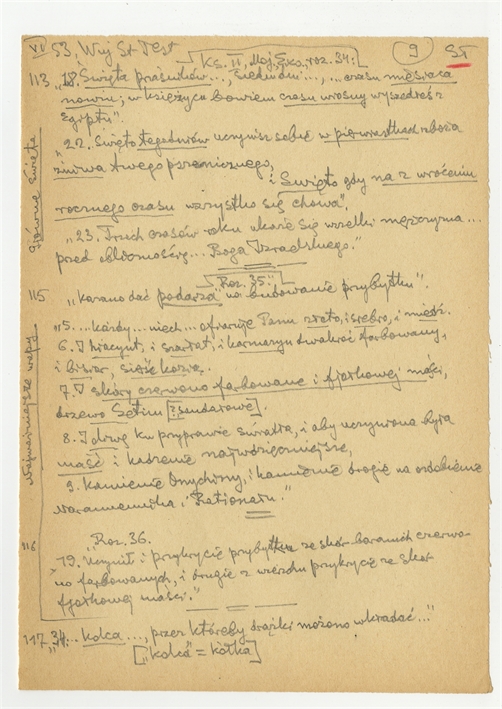 VI 53, Wuj St Test 9 ST
Ks. II, Mojż. Exo, roz. 34:
113 "18. Święta praśników..., Siedm dni..., ... czasu miesiąca
nowin; w księżyca bowiem czasu wiosny wyszedłeś z
Egiptu".
"22. Święto tegodniów uczynisz sobie w pierwastkach zboża
żniwa twego pszenicznego,
i Święto gdy na z wróceniu
rocznego czasu wszystko się chowa".
"23. Trzech czasów roku ukaże się wszelki mężczyzna...
przed obliczności... Boga Izraelskiego."
Główne Święta
"Roz. 35"
115 "Kazano dać podarza na budowanie przybytku"
"5. ... każdy... niech... ofiaruje Panu złoto, i srebro, i miedź.
6. I hiacynt, i szarłat, i karmazyn dwakroć farbowany,
i bisior, sierść kozią.
7. I skóry czerwono farbowane i fjołkowej maści,
drzewo Setim
8. I oliwę ku przyprawie światła, i aby uczyniona była
maść i kadzenie najwdzięczniejsze,
9. Kamienie Onychiny, i kamienie drogie na ozdobienie
Naramiennika i Rationału."
Najważniejsze
116 "Roz. 36.
"19. Uczynił i przykrycie przybytku ze skór baranich czerwo-
no farbowanych, i drugie z wierzchu przykrycie ze skór
fjołkowej maści."
117 "34... kolca..., przez któreby drążki możono wkładać..."
["kolca" = kółka]